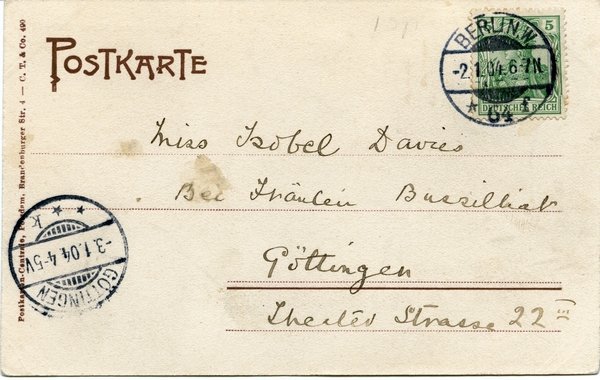 POSTKARTE
Postkarten-Centrale, Potsdam, Brandenburger Str. 4 — C. T. & Co. 490
BERLIN W.
-2.1.04.6-7N.
* 64 f
5
DEUTSCHES REICH
Miss Isobel Davies
Bei Fräulein
Göttingen
Theater Strasse 22 II
* * k
-3.1.04.4-5V.
GÖTTINGEN